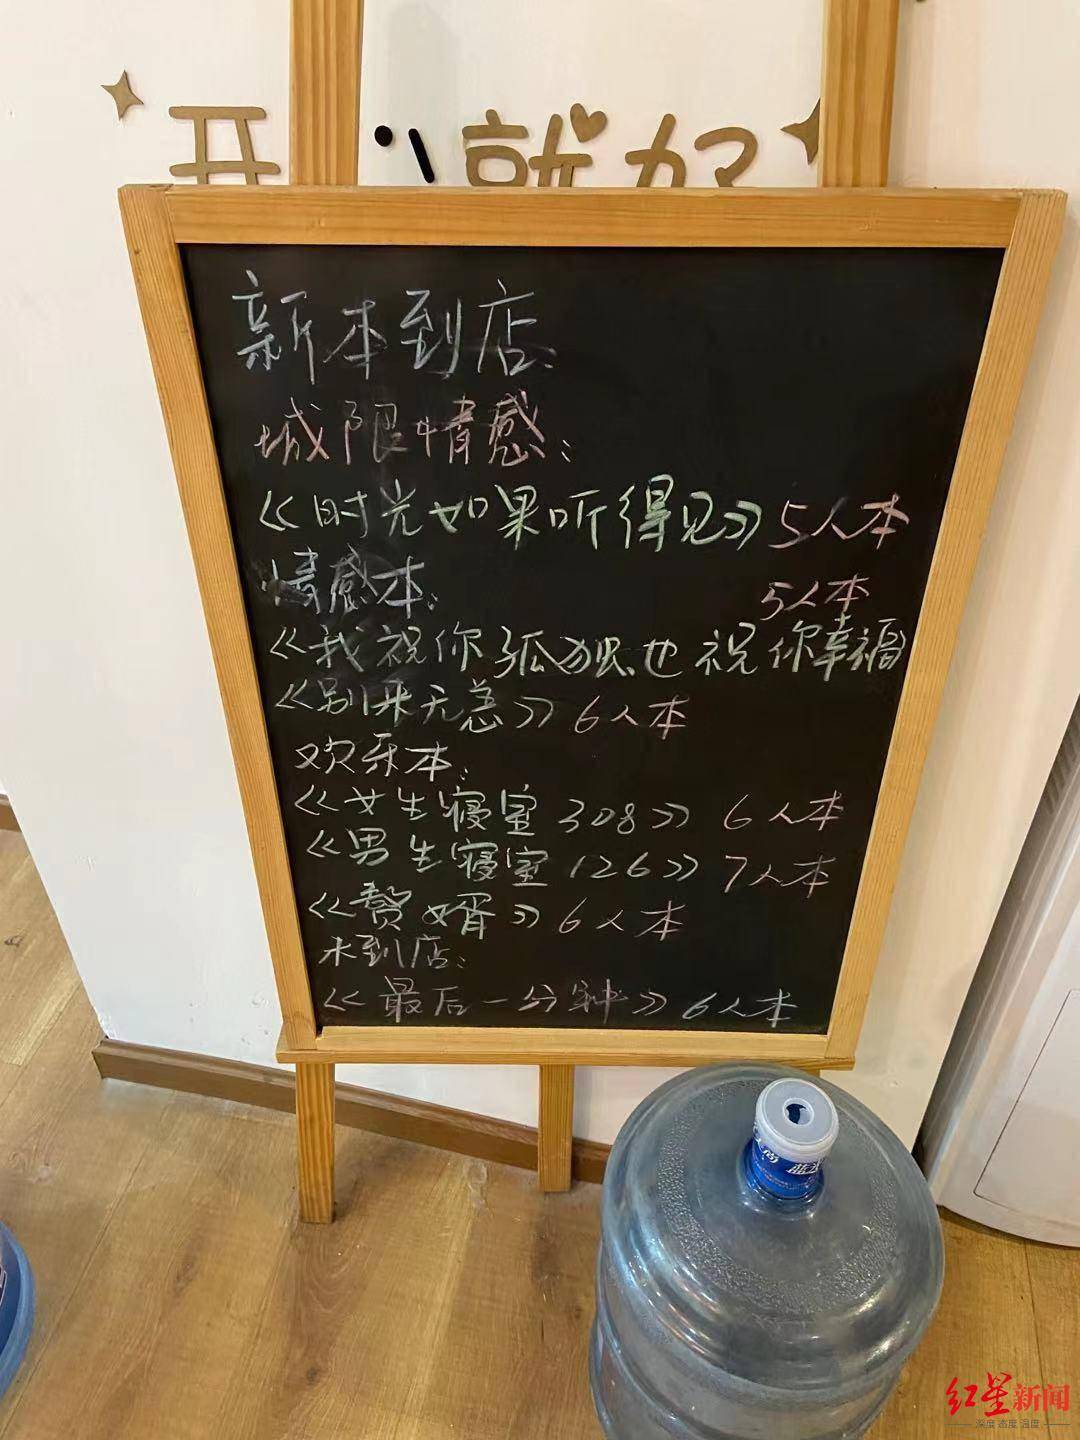 开 就好
新本到店:
城限情感:
《时光如果听得见》5人本
情感本:
5人本
《我祝你孤独也祝你幸福》
《别来无恙》6人本
欢乐本:
《女生寝室308》6人本
《男生寝室126》7人本
《赘婿》6人本
未到店:
《最后一分钟》6人本
红星新闻
深度 态度 温度